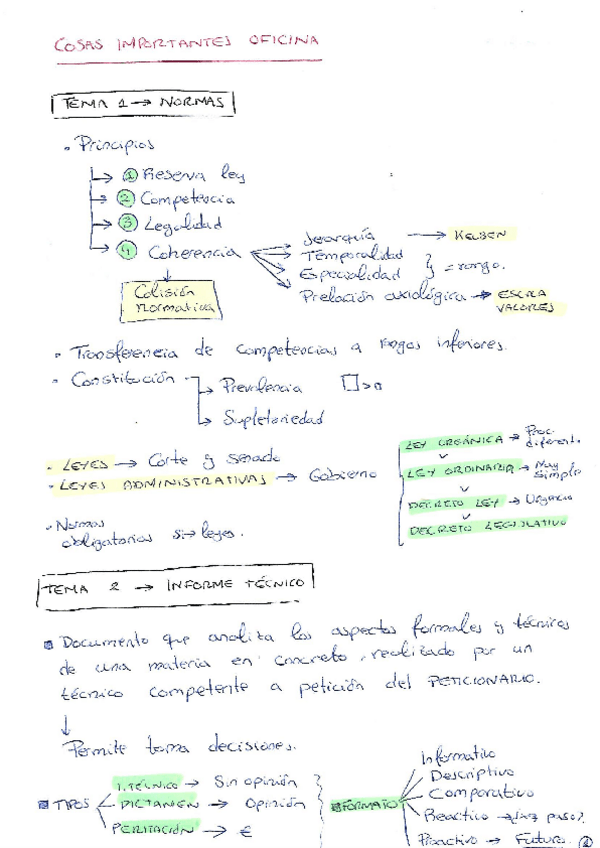 COSAS IMPORTANTES OFICINA
TEMA 1 → NORMAS
• Principios
→ ① Reserva ley
→ ② Competencia
→ ③ Legalidad
→ ④ Coherencia
Jerarquía → KELSEN
Temporalidad
Especialidad } = rango.
Prelación axiológica → ESCALA VALORES
Colisión
normativa
• Transferencia de competencias a rangos inferiores.
• Constitución → Prevalencia □ > □
→ Supletoriedad
• LEYES → Corte y senado
• LEYES ADMINISTRATIVAS → Gobierno
LEY ORGÁNICA → Proc. diferente
LEY ORDINARIA → Muy simple
DECRETO LEY → Urgencia
DECRETO LEGISLATIVO
• Normas
obligatorias si → leyes.
TEMA 2 → INFORME TÉCNICO
Documento que analiza los aspectos formales y técnicos
de una materia en concreto, realizado por un
técnico competente a petición del PETICIONARIO.
↓
Permite toma decisiones.
TIPOS
I. TÉCNICO → Sin opinión
DICTAMEN → Opinión
PERITACIÓN → €
FORMATO
Informativo
Descriptivo
Comparativo
Reactivo → ¿ paso?
Proactivo → Futuro.